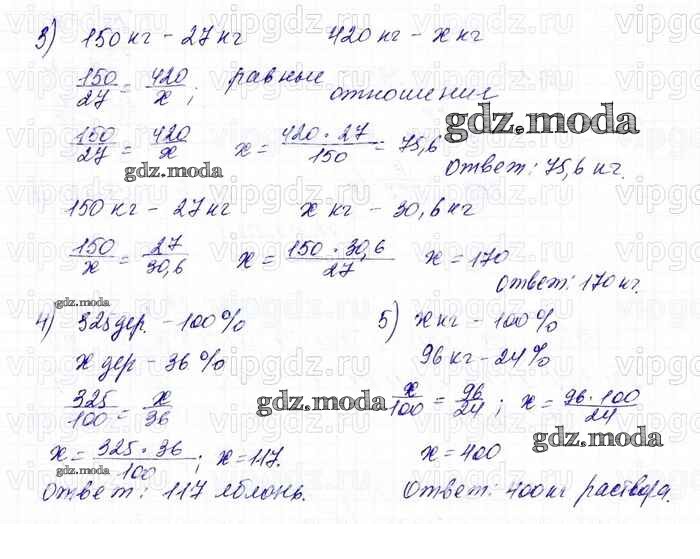 3) 150 кг - 27 кг   420 кг - x кг
150/27 = 420/x ; равные
отношения
150/27 = 420/x   x = 420·27/150 = 75,6
Ответ: 75,6 кг.
150 кг - 27 кг   x кг - 30,6 кг
150/x = 27/30,6   x = 150·30,6/27   x = 170
Ответ: 170 кг.
4) 325 дер. - 100%
x дер - 36%
325/100 = x/36
x = 325·36/100 ; x = 117.
Ответ: 117 яблонь.
5) x кг - 100%
96 кг - 24%
x/100 = 96/24 ; x = 96·100/24
x = 400
Ответ: 400 кг раствора.
gdz.moda
gdz.moda
gdz.moda
gdz.moda
gdz.moda
gdz.moda
vipgdz.ru